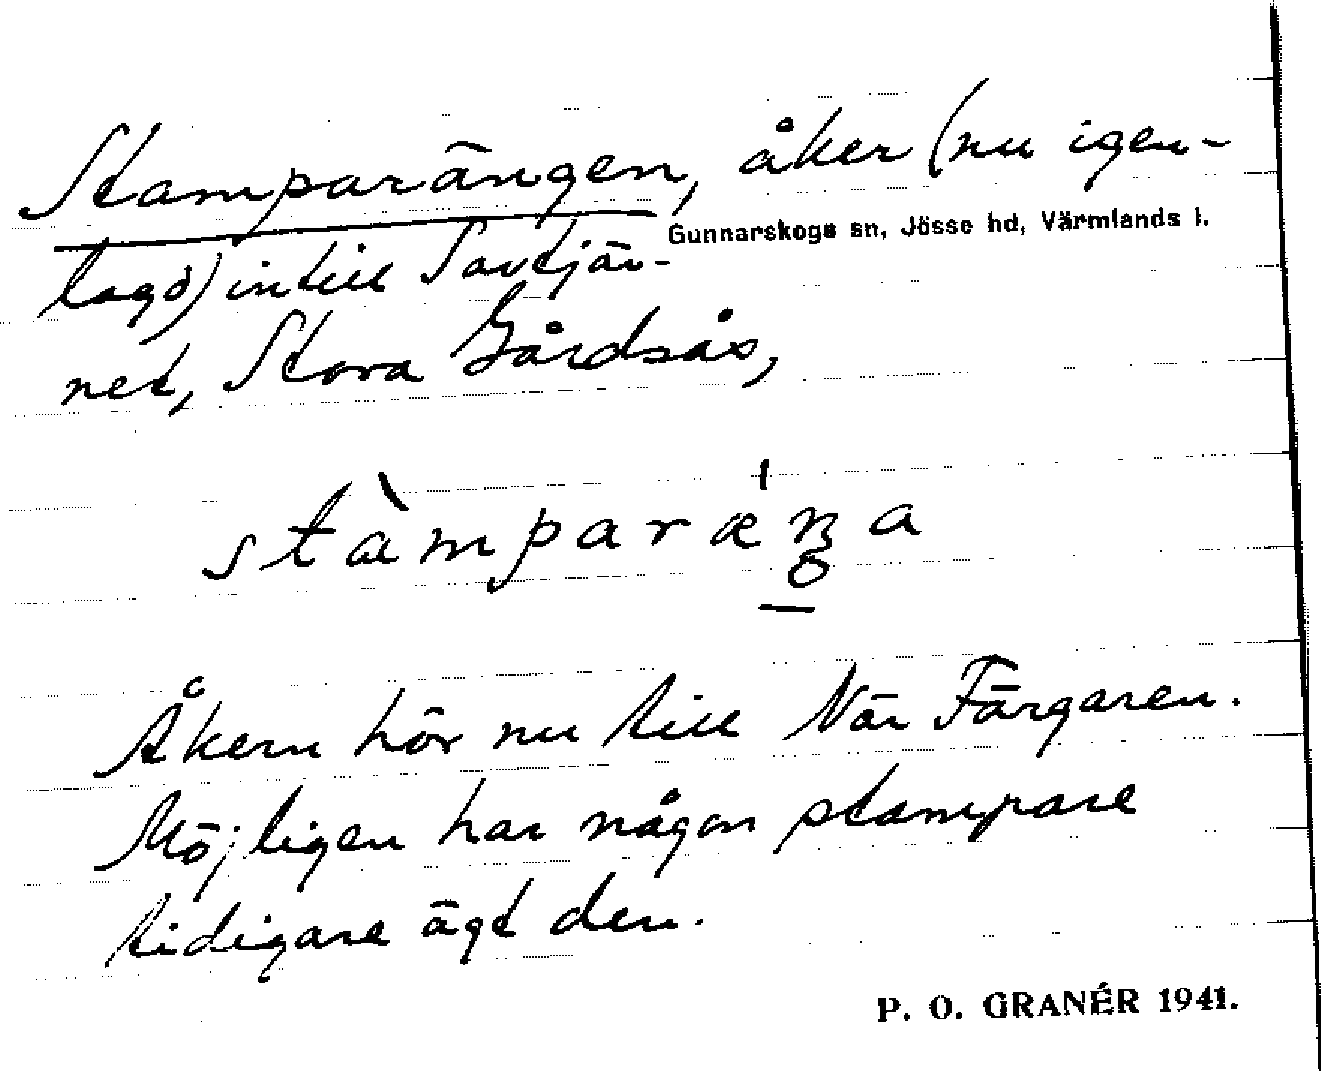 Stamparängen, åker (nu igen-
Gunnarskogs sn, Jösse hd, Värmlands l.
lagd) intill Savtjär-
net, Stora Gårdsås,
stàmparæŋa
Åkern hör nu till När Färgaren.
Möjligen har någon stampare
tidigare ägt den.
P. O. GRANÉR 1941.